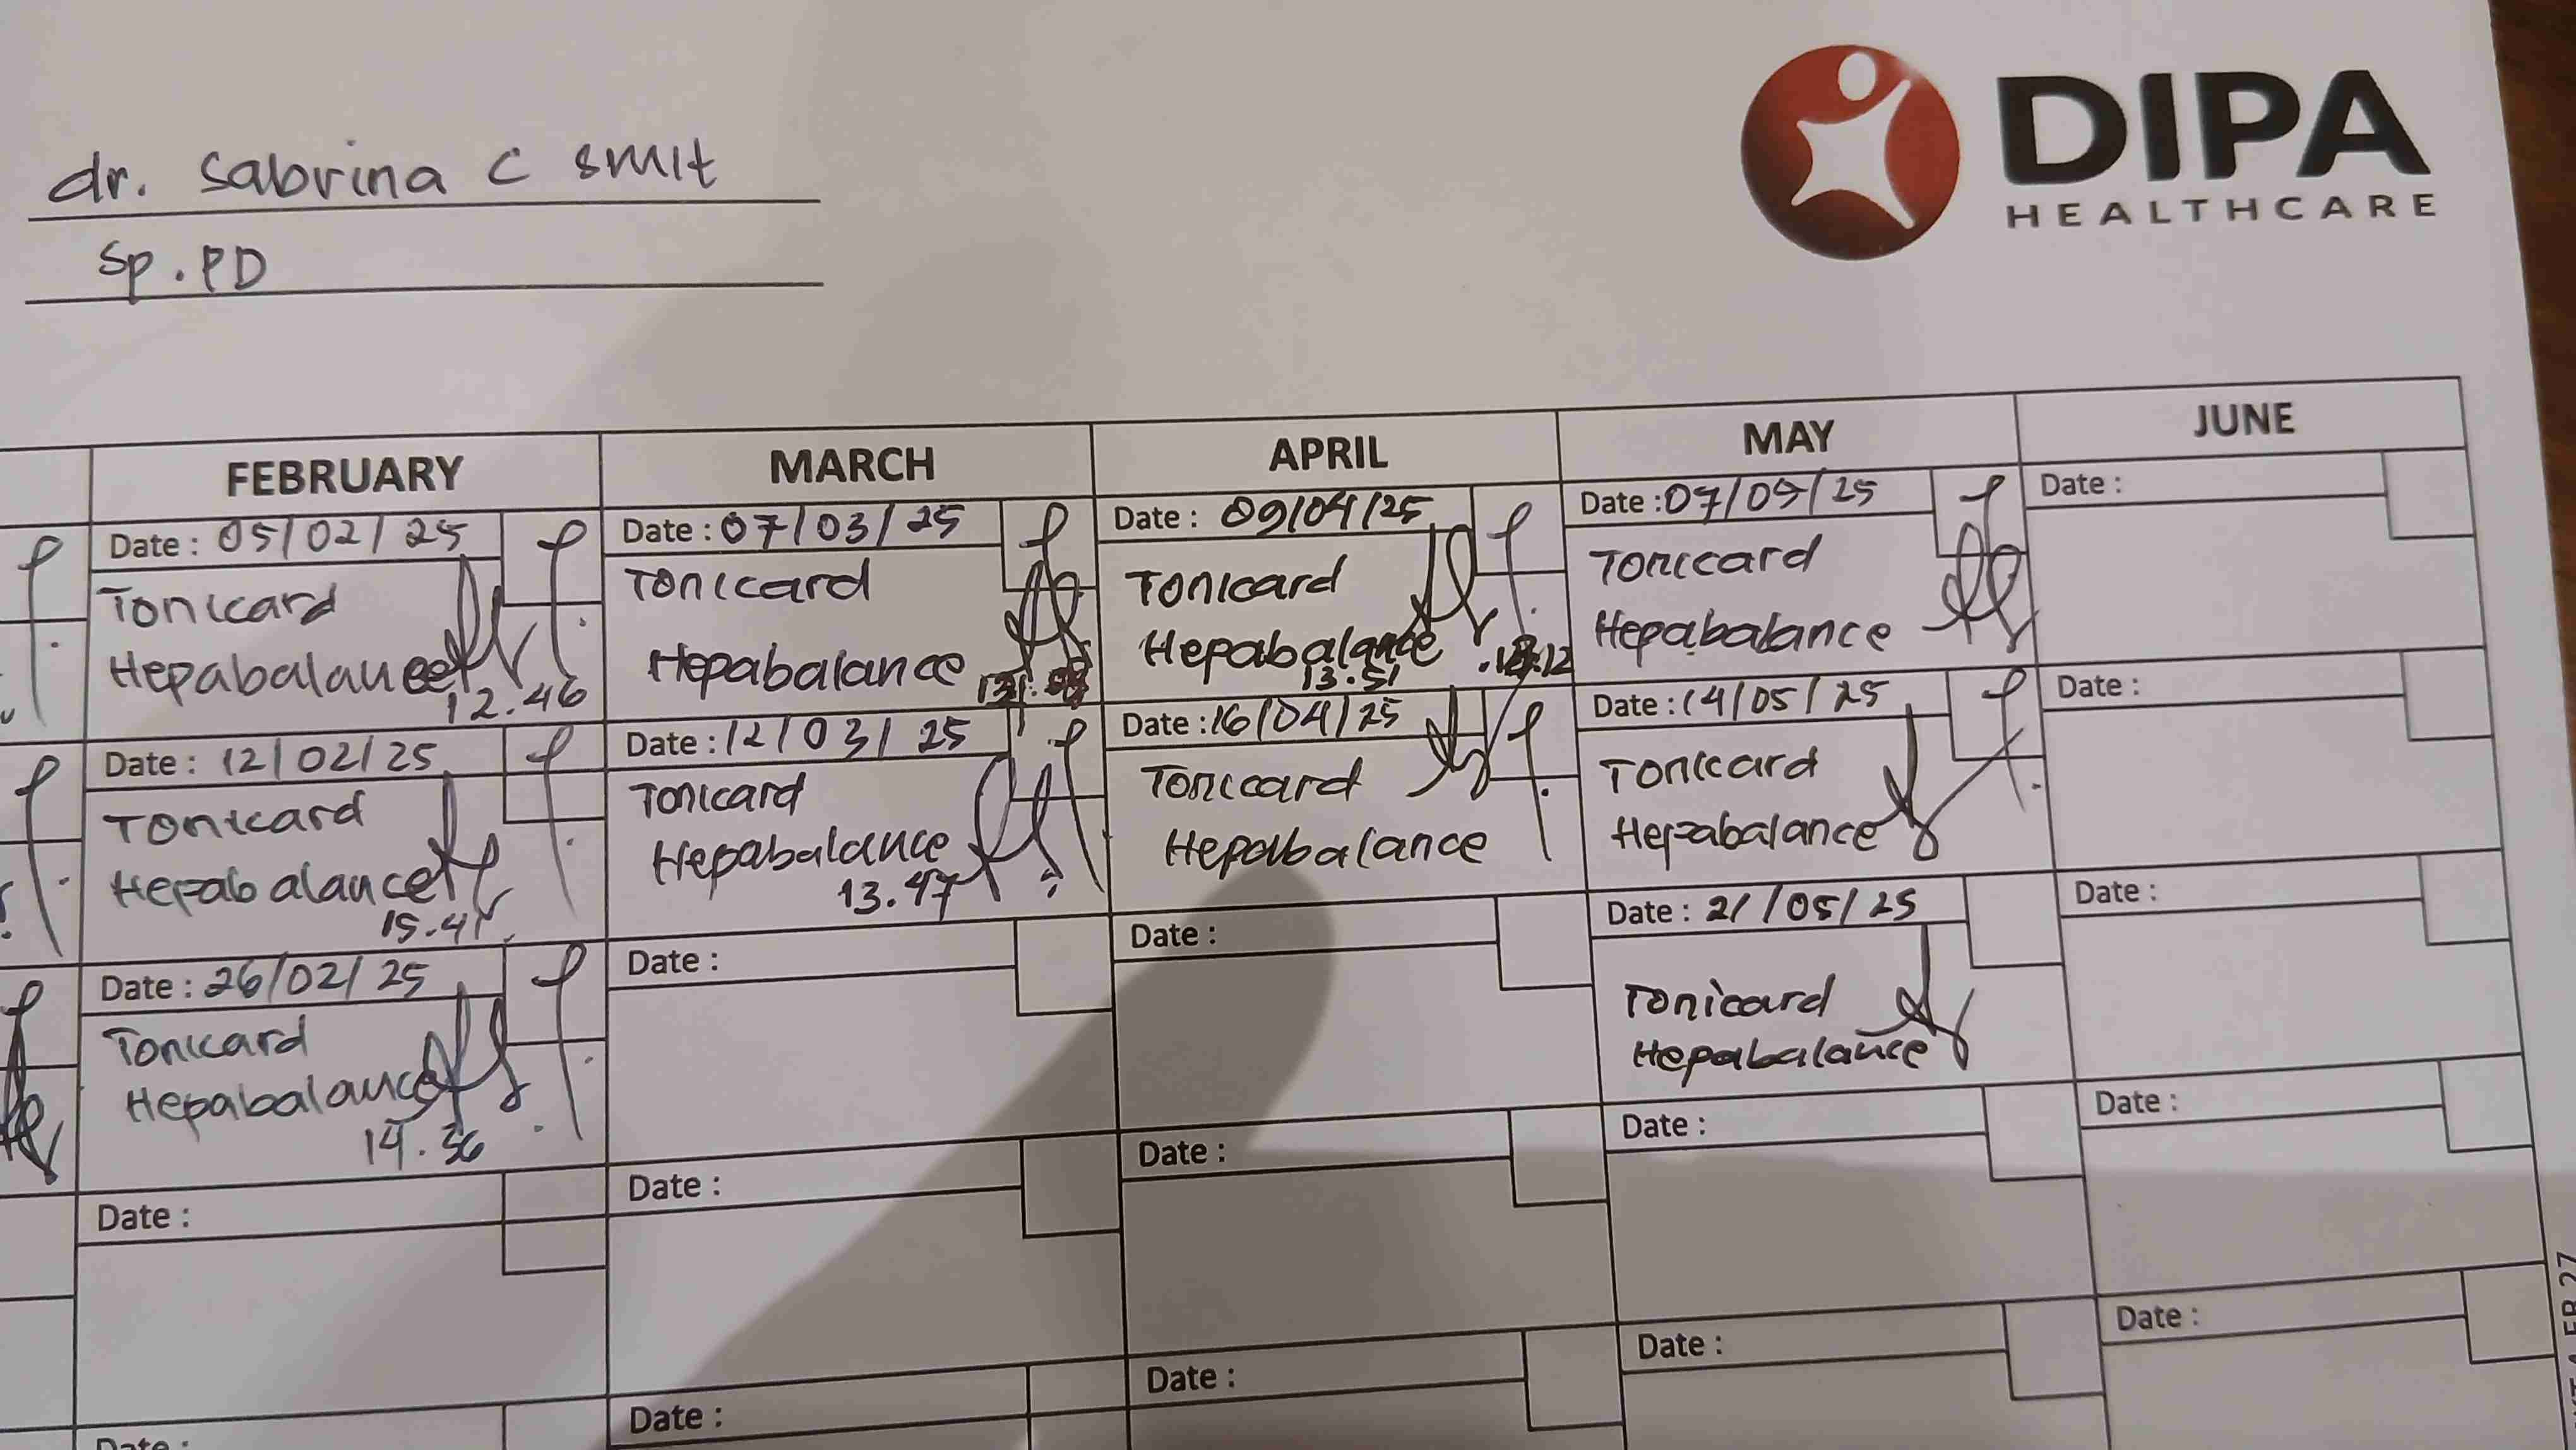 DIPA
HEALTHCARE
dr. Sabrina C smit
Sp.PD
FEBRUARY
Date : 05/02/25
Tonicard
Hepabalance
12.46
Date : 12/02/25
Tonicard
Hepabalance
15.41
Date : 26/02/25
Tonicard
Hepabalance
14.36
Date :
Date :
MARCH
Date : 07/03/25
Tonicard
Hepabalance
Date : 12/03/25
Tonicard
Hepabalance
13.47
Date :
Date :
Date :
APRIL
Date : 09/04/25
Tonicard
Hepabalance
13.51
Date : 16/04/25
Tonicard
Hepabalance
Date :
Date :
Date :
MAY
Date : 07/05/25
Tonicard
Hepabalance
Date : 14/05/25
Tonicard
Hepabalance
Date : 21/05/25
Tonicard
Hepabalance
Date :
Date :
JUNE
Date :
Date :
Date :
Date :
Date :